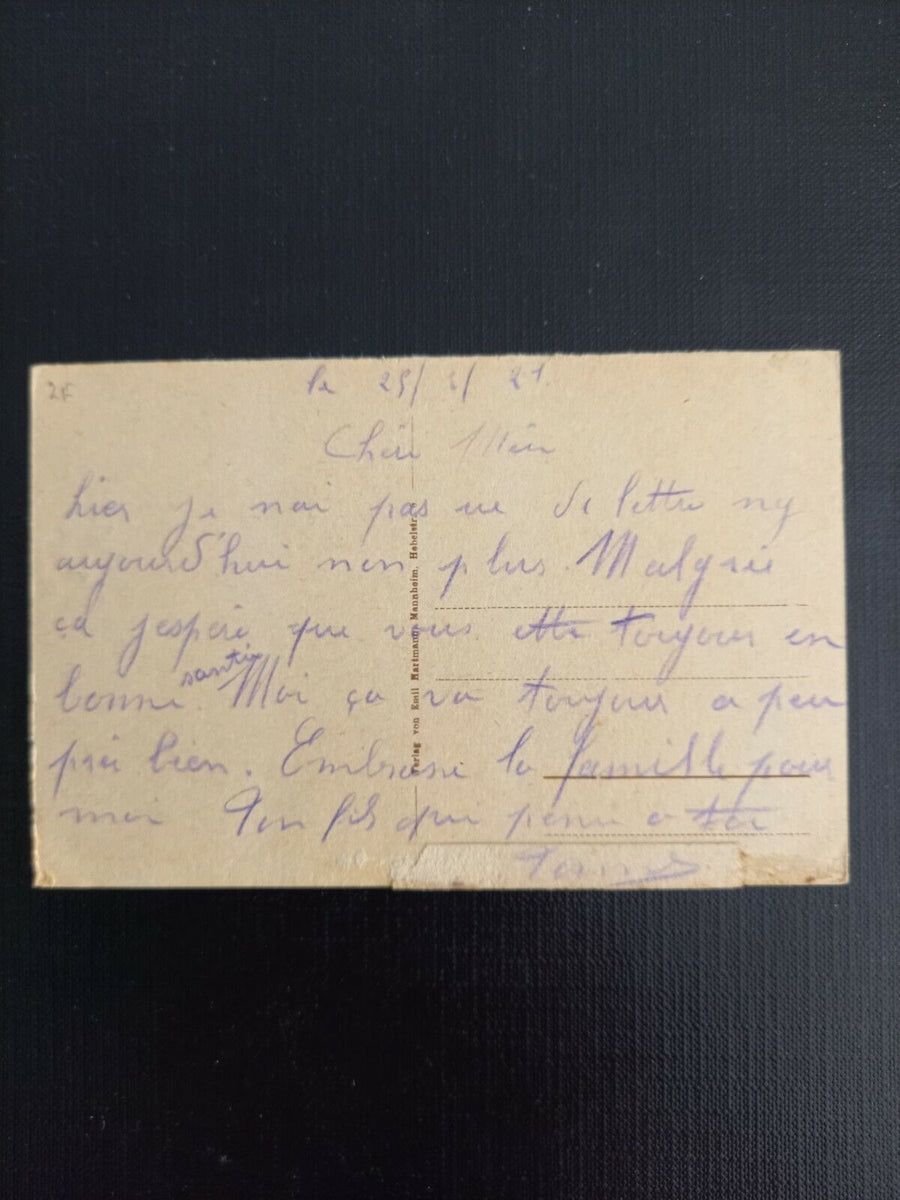 2F
le 25/ 3/ 21
Chère Mère
hier je nai pas ue de lettre ny
aujourd'hui non plus. Malgrée
ça jespère que vous ette toujour en
bonne santé. Moi ça va toujour a peu
près bien. Embrasse la famille pour
moi Ton fils qui pense a toi
Verlag von Emil Hartmann, Mannheim, Hebelstr.